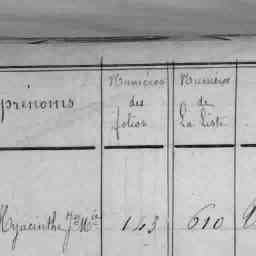 prénoms
Numéros
des
folios
Numéros
de
La Liste
Hyacinthe Jh Mie
143
610